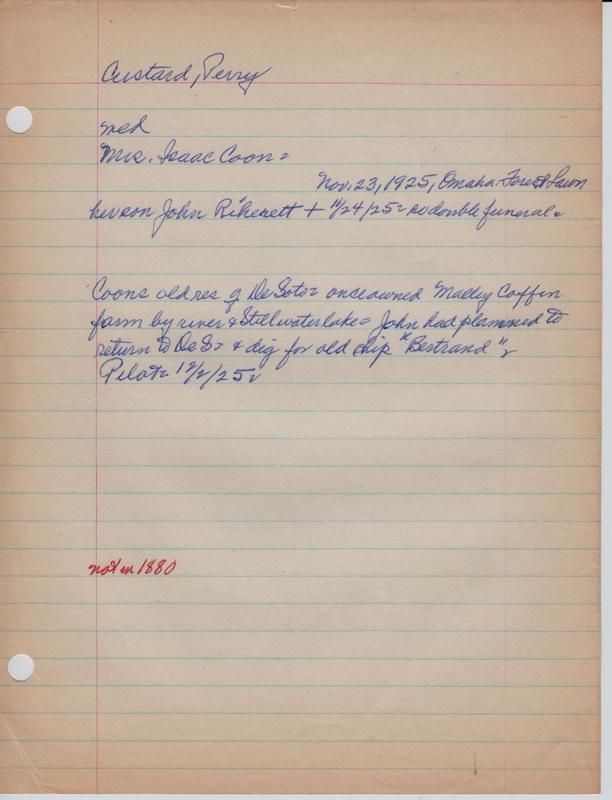 Custard, Perry
med
Mrs. Isaac Coon=
Nov. 23, 1925, Omaha-Forest Lawn
her son John + 11/24/25= so double funeral.
Coons old res of DeSoto= once owned Coffin
farm by river & Stillwater lake= John had planned to
return to DeSo & dig for old ship "Bertrand",
Pilot= 12/2/25
not in 1880